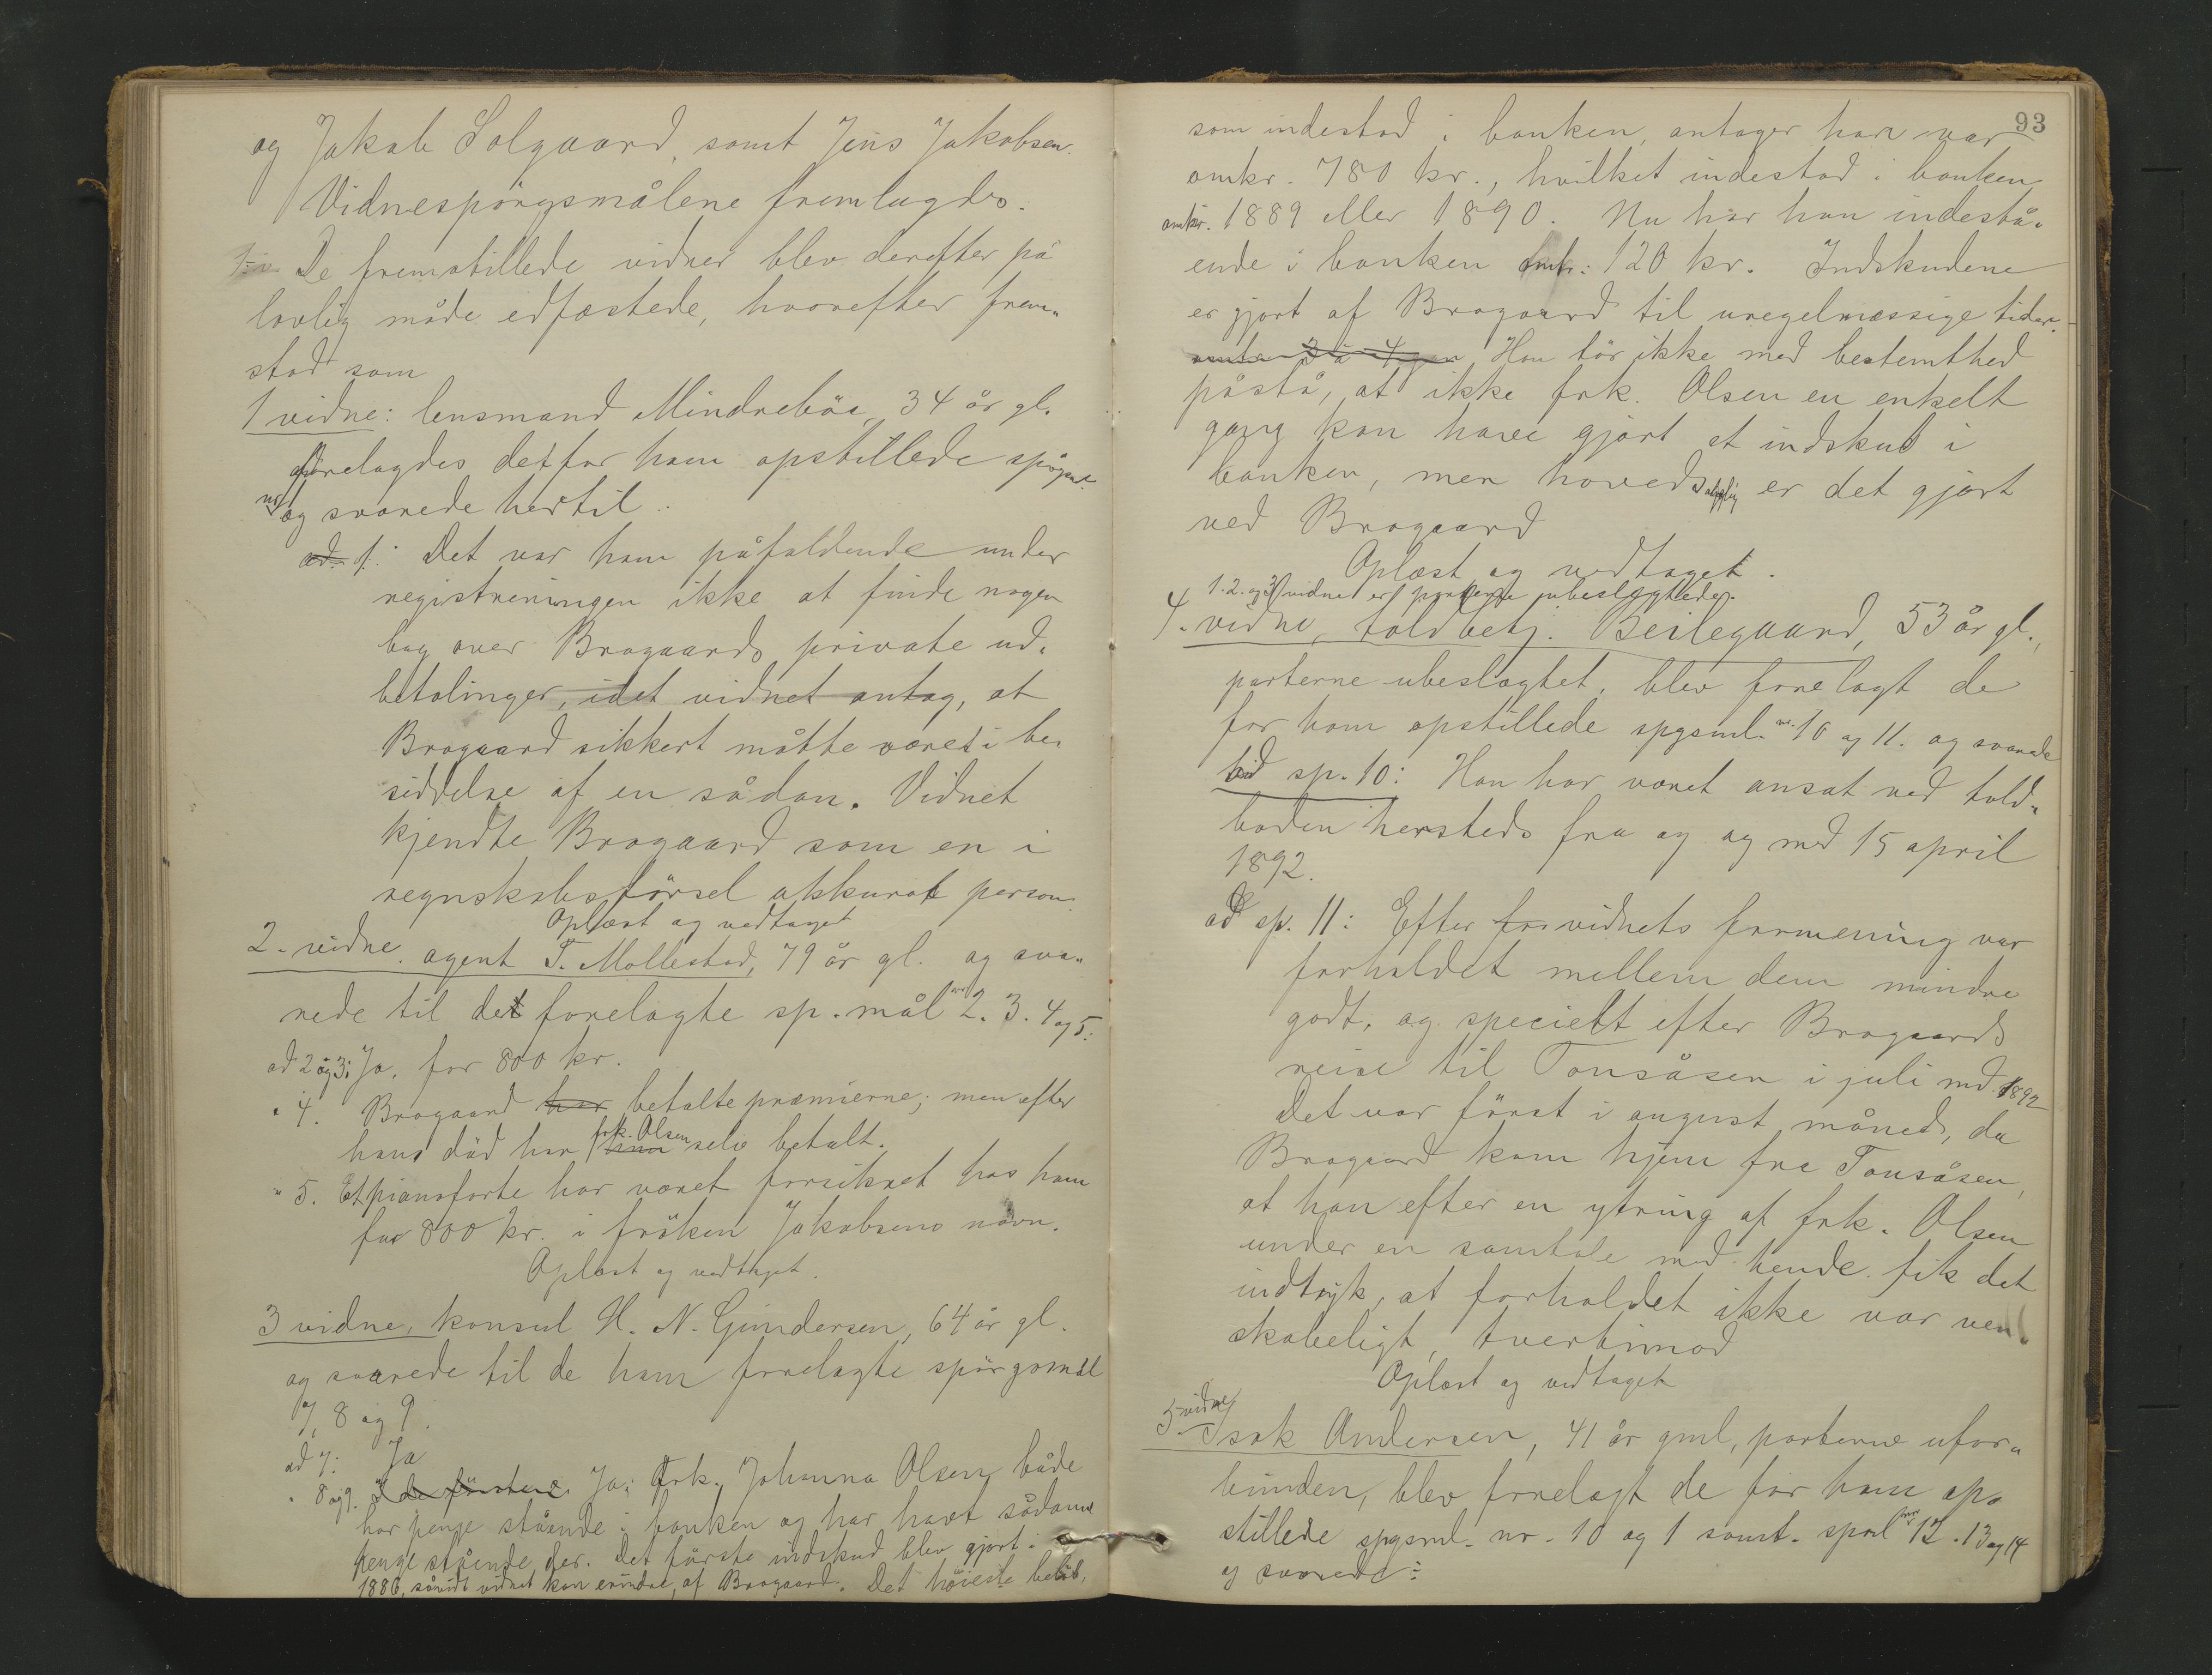 og Jakob Solgaard, samt Jens Jakobsen.
Vidnespörgsmålene fremlagdes.
De fremstillede vidner blev derefter på
lovlig måde edfæstede, hvorefter frem„
stod som
1 vidne: lensmand Mindreböe, 34 år gl.
forelagdes det for ham opstillede spögsm.
nr 1 og svarede hertil:
ad. 1: Det var ham påfaldende under
registreringen ikke at finde nogen
bog over Brogaards private ud„
betalinger, idet vidnet antog, at
Brogaard sikkert måtte været i be„
siddelse af en sådan. Vidnet
kjendte Brogaard som en i
regnskabsförsel akkurat person.
Oplæst og vedtaget
2. vidne. agent T. Mollestad, 79 år gl. og sva„
rede til det forelagte sp.mål nr 2. 3. 4 og 5:
ad 2 og 3: Ja, for 800 kr.
" 4. Brogaard har betalte præmierne; men efter
hans död har frk. Olsen selv betalt.
" 5. Et pianoforte har været forsikret hos ham
for 800 kr. i fröken Jakobsens navn.
Oplæst og vedtaget.
3 vidne, konsul H. N. Gundersen, 64 år gl.
og svarede til de ham forelagte spörgsmål
7, 8 og 9.
ad 7: Ja
" 8 og 9. Ja; Frk. Johanna Olsen både
har penge stående i banken og har havt sådanne
penge stående der. Det förste indskud blev gjort i
1886, såvidt vidnet kan erindre, af Brogaard. Det höieste belöb,
93
som indestod i banken, antager han var
omkr. 780 kr., hvilket indestod i banken
omkr. 1889 eller 1890. Nu har hun indestå„
ende i banken omkr. 120 kr. Indskudene
er gjort af Brogaard til uregelmæssige tider.
omtr. 3 à 4 gr Han tör ikke med bestemthed
påstå, at ikke frk. Olsen en enkelt
gang kan have gjort et indskud i
banken, men hovedsagelig er det gjort
ved Brogaard
Oplæst og vedtaget.
1. 2. og 3 vidne er parterne ubeslægtede.
4. vidne, toldbetj. Beilegaard, 53 år gl.,
parterne ubeslægtet, blev forelagt de
for ham opstillede spgsml. nr. 10 og 11. og svarede
ad sp. 10: Han har været ansat ved told„
boden hersteds fra og og med 15 april
1892.
ad sp. 11: Efter for vidnets formening var
forholdet mellem dem mindre
godt, og specielt efter Brogaards
reise til Tonsåsen i juli md. 1892
Det var först i august måned, da
Brogaard kom hjem fra Tonsåsen,
at han efter en ytring af frk. Olsen
under en samtale med hende fik det
indtryk, at forholdet ikke var ven„
skabeligt, tvertimod
Oplæst og vedtaget
5 vidne Isak Andersen, 41 år gml, parterne ufor„
bunden, blev forelagt de for ham op„
stillede spgsml. nr. 10 og 1 samt. spml nr 12. 13 og 14
og svarede: